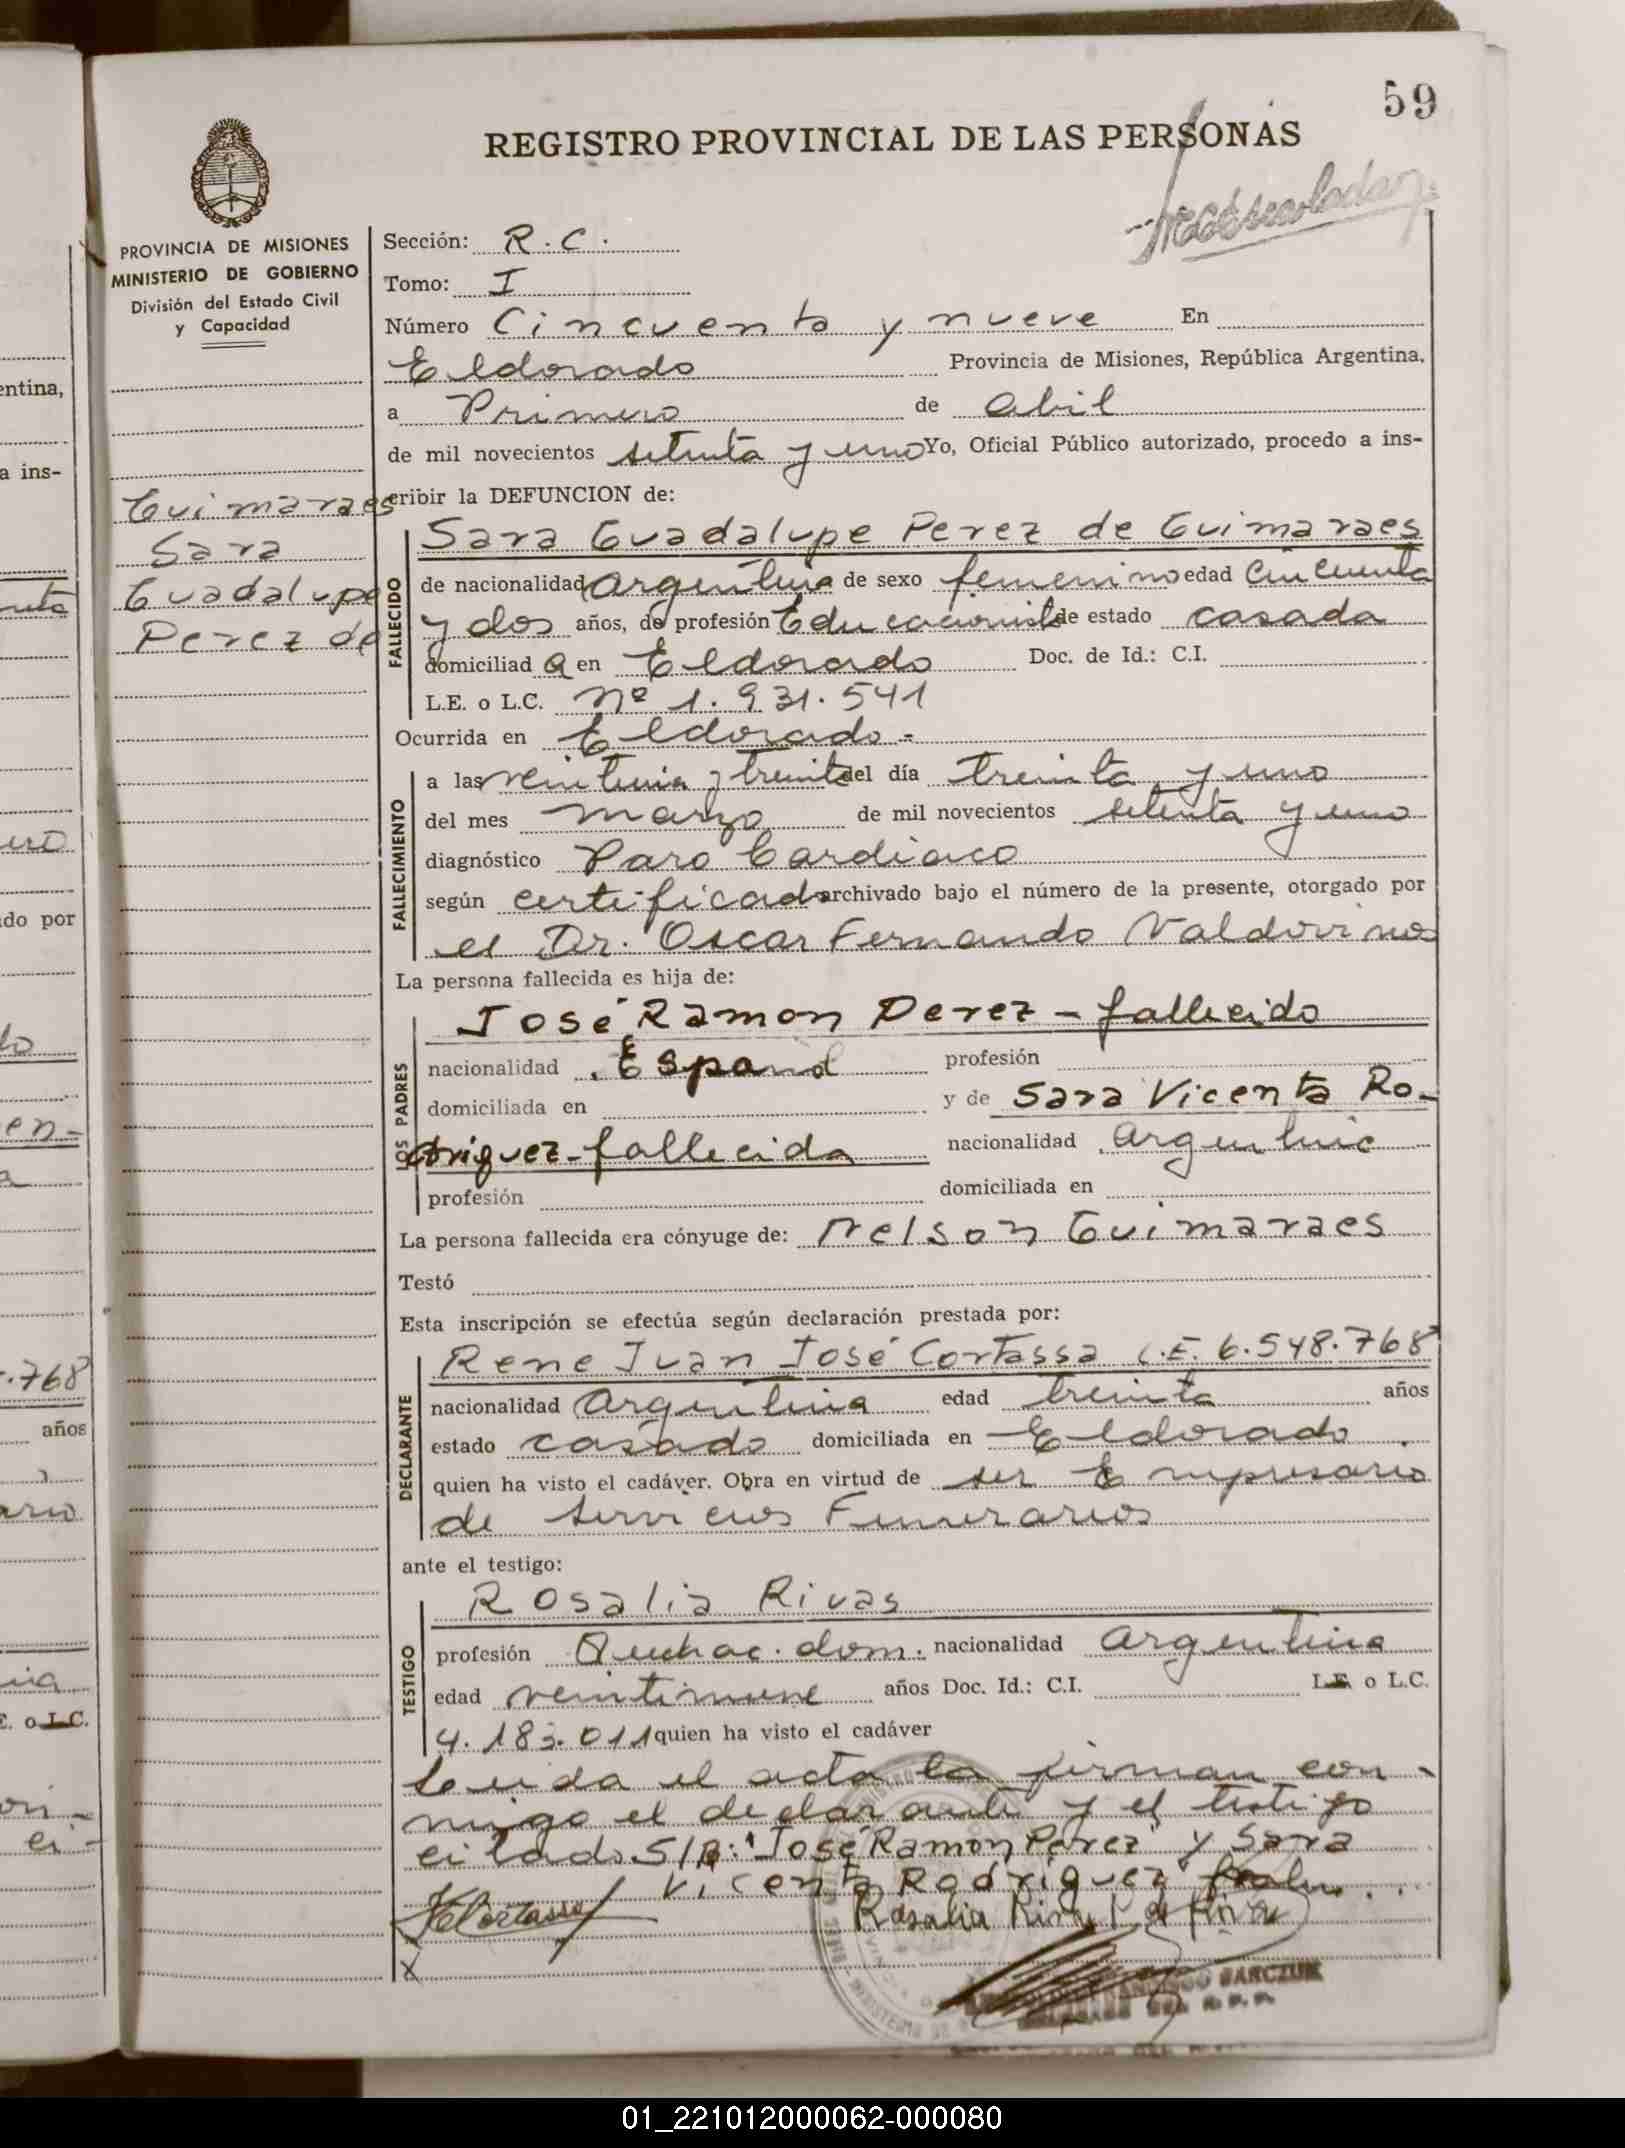 59
REGISTRO PROVINCIAL DE LAS PERSONAS
PROVINCIA DE MISIONES
MINISTERIO DE GOBIERNO
División del Estado Civil
y Capacidad
Sección: R.C.
Tomo: I
Número Cincuenta y nueve En
Eldorado Provincia de Misiones, República Argentina,
a Primero de Abil
de mil novecientos setenta y uno Yo, Oficial Público autorizado, procedo a ins-
cribir la DEFUNCION de:
Guimaraes
Sara
Guadalupe
Perez de
FALLECIDO
Sara Guadalupe Perez de Guimaraes
de nacionalidad Argentina de sexo femenino edad Cincuenta
y dos años, de profesión Educacionista de estado casada
domiciliad a en Eldorado Doc. de Id.: C.I.
L.E. o L.C. Nº 1.931.541
Ocurrida en Eldorado -
FALLECIMIENTO
a las veintiuna y treinta del día treinta y uno
del mes marzo de mil novecientos setenta y uno
diagnóstico Paro Cardiaco
según certificado archivado bajo el número de la presente, otorgado por
el Dr. Oscar Fernando Valdovinos
La persona fallecida es hija de:
LOS PADRES
José Ramon Perez - fallecido
nacionalidad Español profesión
domiciliada en y de Sara Vicenta Ro-
driguez - fallecida nacionalidad Argentina
profesión domiciliada en
La persona fallecida era cónyuge de: Nelson Guimaraes
Testó
Esta inscripción se efectúa según declaración prestada por:
DECLARANTE
Rene Juan José Cortassa L.E. 6.548.768
nacionalidad Argentina edad treinta años
estado casado domiciliada en Eldorado
quien ha visto el cadáver. Obra en virtud de ser Empresario
de Servicios Funerarios
ante el testigo:
TESTIGO
Rosalia Rivas
profesión Quehac. dom. nacionalidad Argentina
edad veintinueve años Doc. Id.: C.I. L.E. o L.C.
4.183.011 quien ha visto el cadáver
Leida el acta la firman con-
migo el declarante y el testigo
citado S/R: "José Ramon Perez" y Sara
Vicenta Rodriguez
Cortassa
Rosalia Rivas
01_221012000062-000080